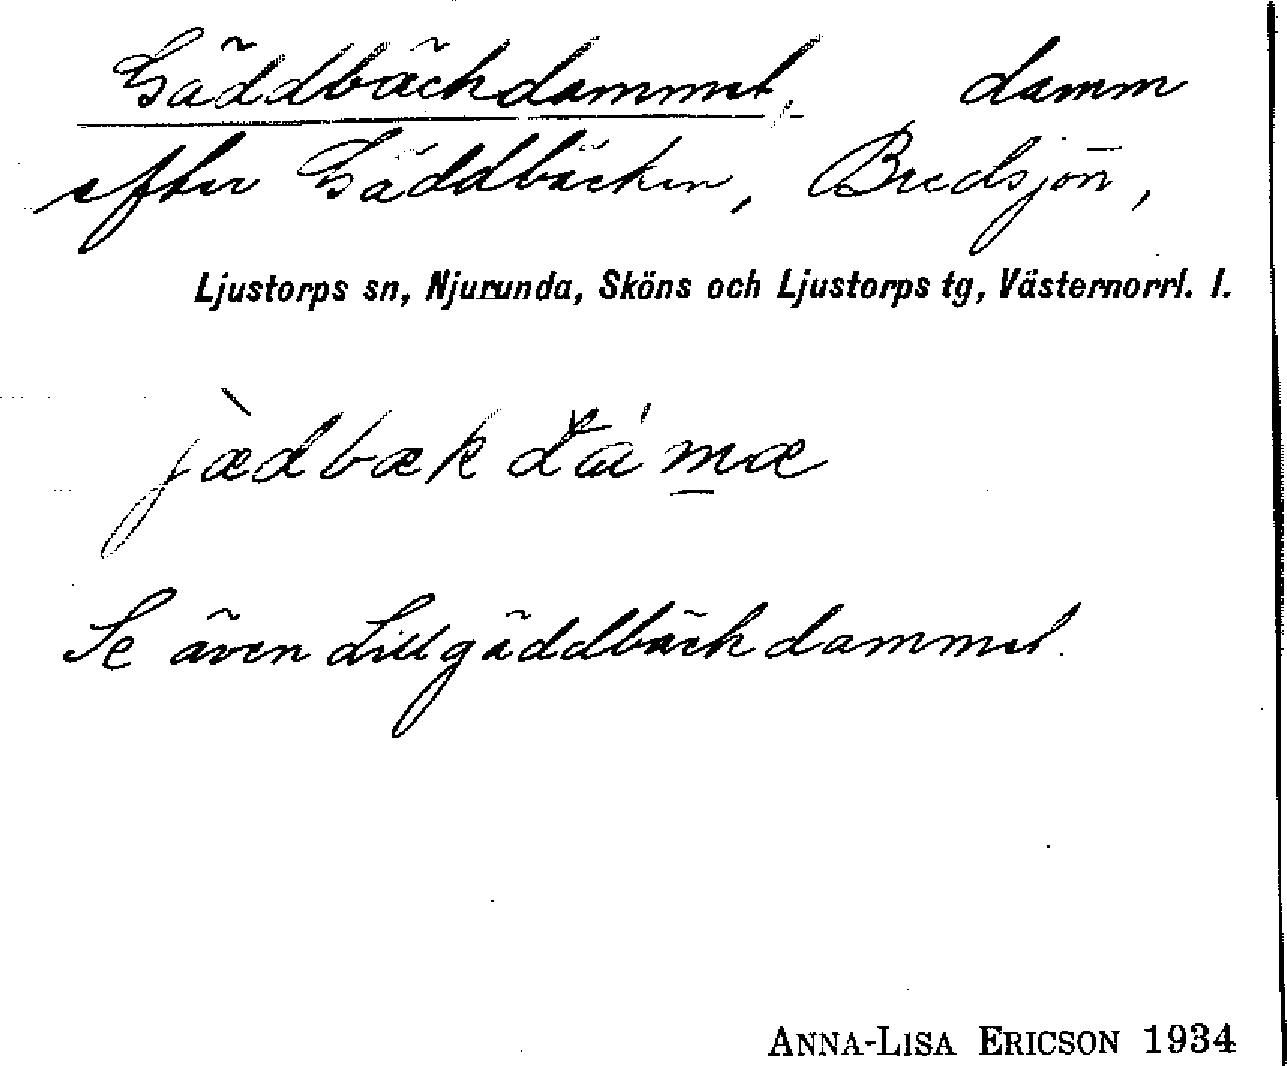 Gäddbäckdammet, damm
efter Gäddbäcken, Bredsjön,
Ljustorps sn, Njurunda, Sköns och Ljustorps tg, Västernorrl. l.
jæ̀dbækdáməæ
Se även Lillgäddbäckdammet.
ANNA-LISA ERICSON 1934